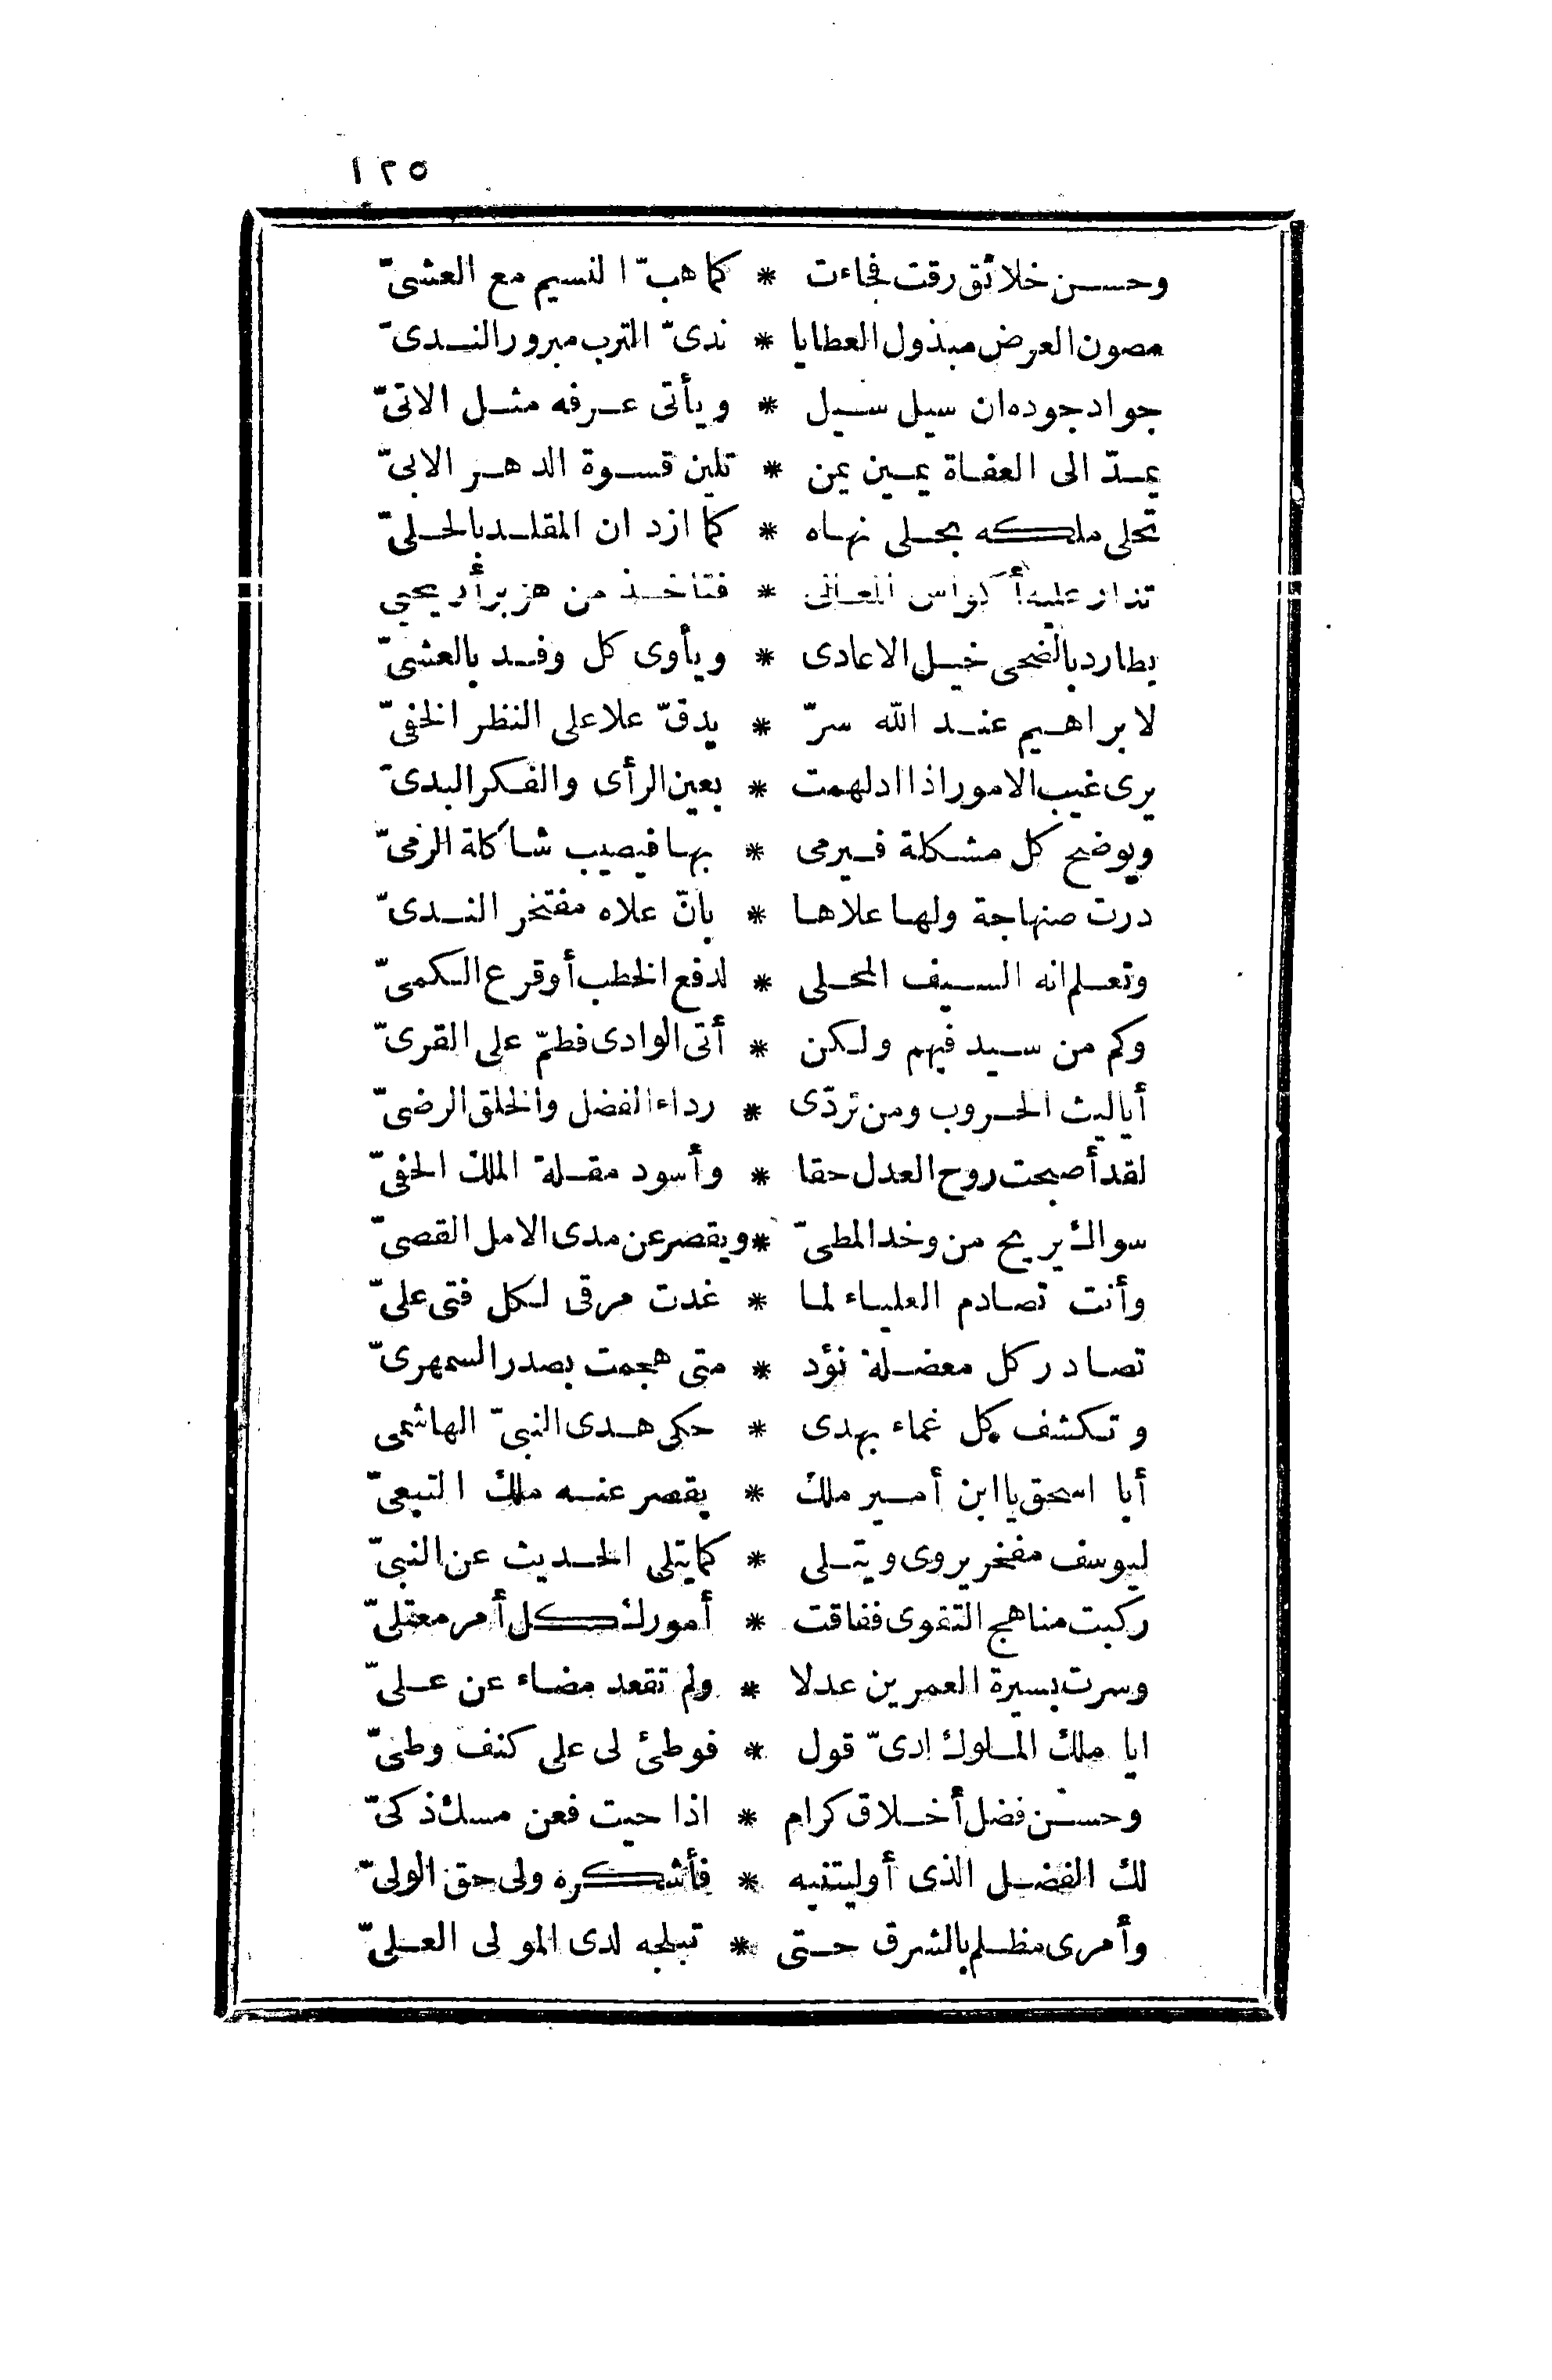 ١٢٥
وحسن خلائق رقت فجاءت * كما هبّ النسيم مع العشىّ
مصون العرض مبذول العطايا * ندىّ الترب مبرور الندىّ
جواد جوده ان سيل سيل * ويأتى عرفه مثل الاتىّ
يمدّ الى العفاة يمين يمن * تلين قسوة الدهر الابىّ
تحلى ملكه بحلى نهاه * كما ازدان المقلد بالحلىّ
تدار عليه أكواس المعالى * فتأخذ من هزبر أريحيى
يطارد بالضحى خيل الاعادى * ويأوى كل وفد بالعشىّ
لابراهيم عند الله سرّ * يدقّ علا على النظر الخفىّ
يرى غيب الامور اذا ادلهمت * بعين الرأى والفكر البدىّ
ويوضح كل مشكلة فيرمى * بها فيصيب شاكلة الرمىّ
درت صنهاجة ولها علاها * بانّ علاه مفتخر الندىّ
وتعلم انه السيف المحلى * لدفع الخطب أوقرع الكمىّ
وكم من سيد فيهم ولكن * أتى الوادى فطمّ على القرىّ
أياليث الحروب ومن تردّى * رداء الفضل والخلق الرضىّ
لقد أصبحت روح العدل حقا * وأسود مقلة الملك الحفىّ
سواك يريح من وخد المطىّ * ويقصر عن مدى الامل القصىّ
وأنت تصادم العلياء لما * غدت مرقى لكل فتى علىّ
تصادر كل معضلة نؤد * متى هجمت بصدر السمهرىّ
وتكشف كل غماء بهدى * حكى هدى النبىّ الهاشمى
أبا اسحق يا ابن أمير ملك * يقصر عنه ملك التبعىّ
ليوسف مفخر يروى ويتلى * كما يتلى الحديث عن النبىّ
ركبت مناهج التقوى ففاقت * أمورك كل أمر معتلىّ
وسرت بسيرة العمرين عدلا * ولم تقعد مضاء عن علىّ
ايا ملك الملوك ادىّ قول * فوطئ لى على كنف وطىّ
وحسن فضل أخلاق كرام * اذا حيت فعن مسك ذكىّ
لك الفضل الذى أوليتنيه * فأشكره ولى حق الولىّ
وأمرى مظلم بالشرق حتى * تبلجه لدى المولى العلىّ